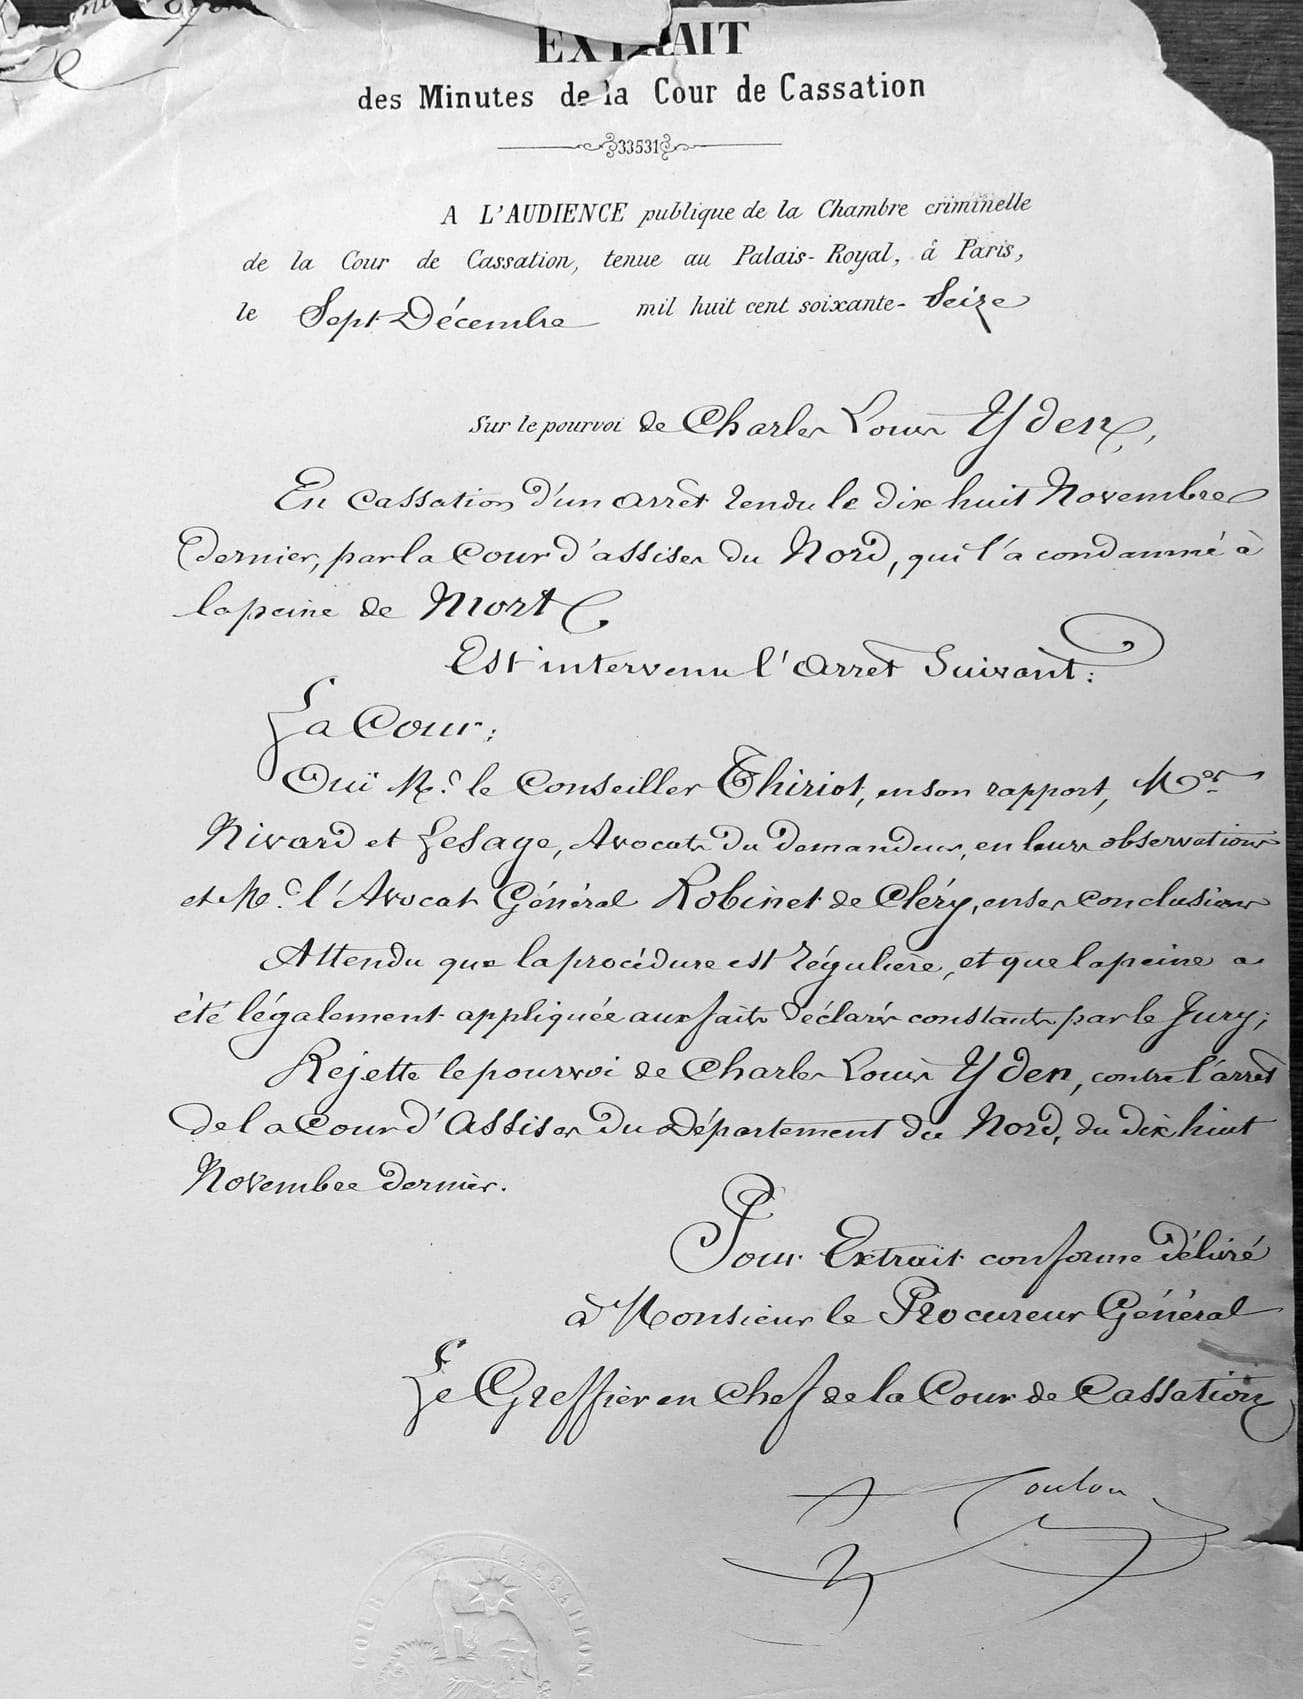 EXTRAIT
des Minutes de la Cour de Cassation
33531
A L'AUDIENCE publique de la Chambre criminelle
de la Cour de Cassation, tenue au Palais-Royal, à Paris,
le Sept Décembre mil huit cent soixante-Seize
Sur le pourvoi de Charles Louis Yden,
En Cassation d'un arrêt rendu le dix huit Novembre
dernier, par la Cour d'assises du Nord, qui l'a condamné à
la peine de Mort
Est intervenu l'arrêt Suivant:
La Cour;
Ouï Mr. le Conseiller Thiriot, en son rapport, Mes
Nivard et Lesage, Avocats du demandeur, en leurs observations
et Mr. l'Avocat Général Robinet de Cléry, en ses Conclusions
Attendu que la procédure est régulière, et que la peine a
été légalement appliquée aux faits déclarés constants par le Jury;
Rejette le pourvoi de Charles Louis Yden, contre l'arrêt
de la Cour d'Assises du Département du Nord, du dix huit
Novembre dernier.
Pour Extrait conforme délivré
à Monsieur le Procureur Général
Le Greffier en Chef de la Cour de Cassation
COUR DE CASSATION